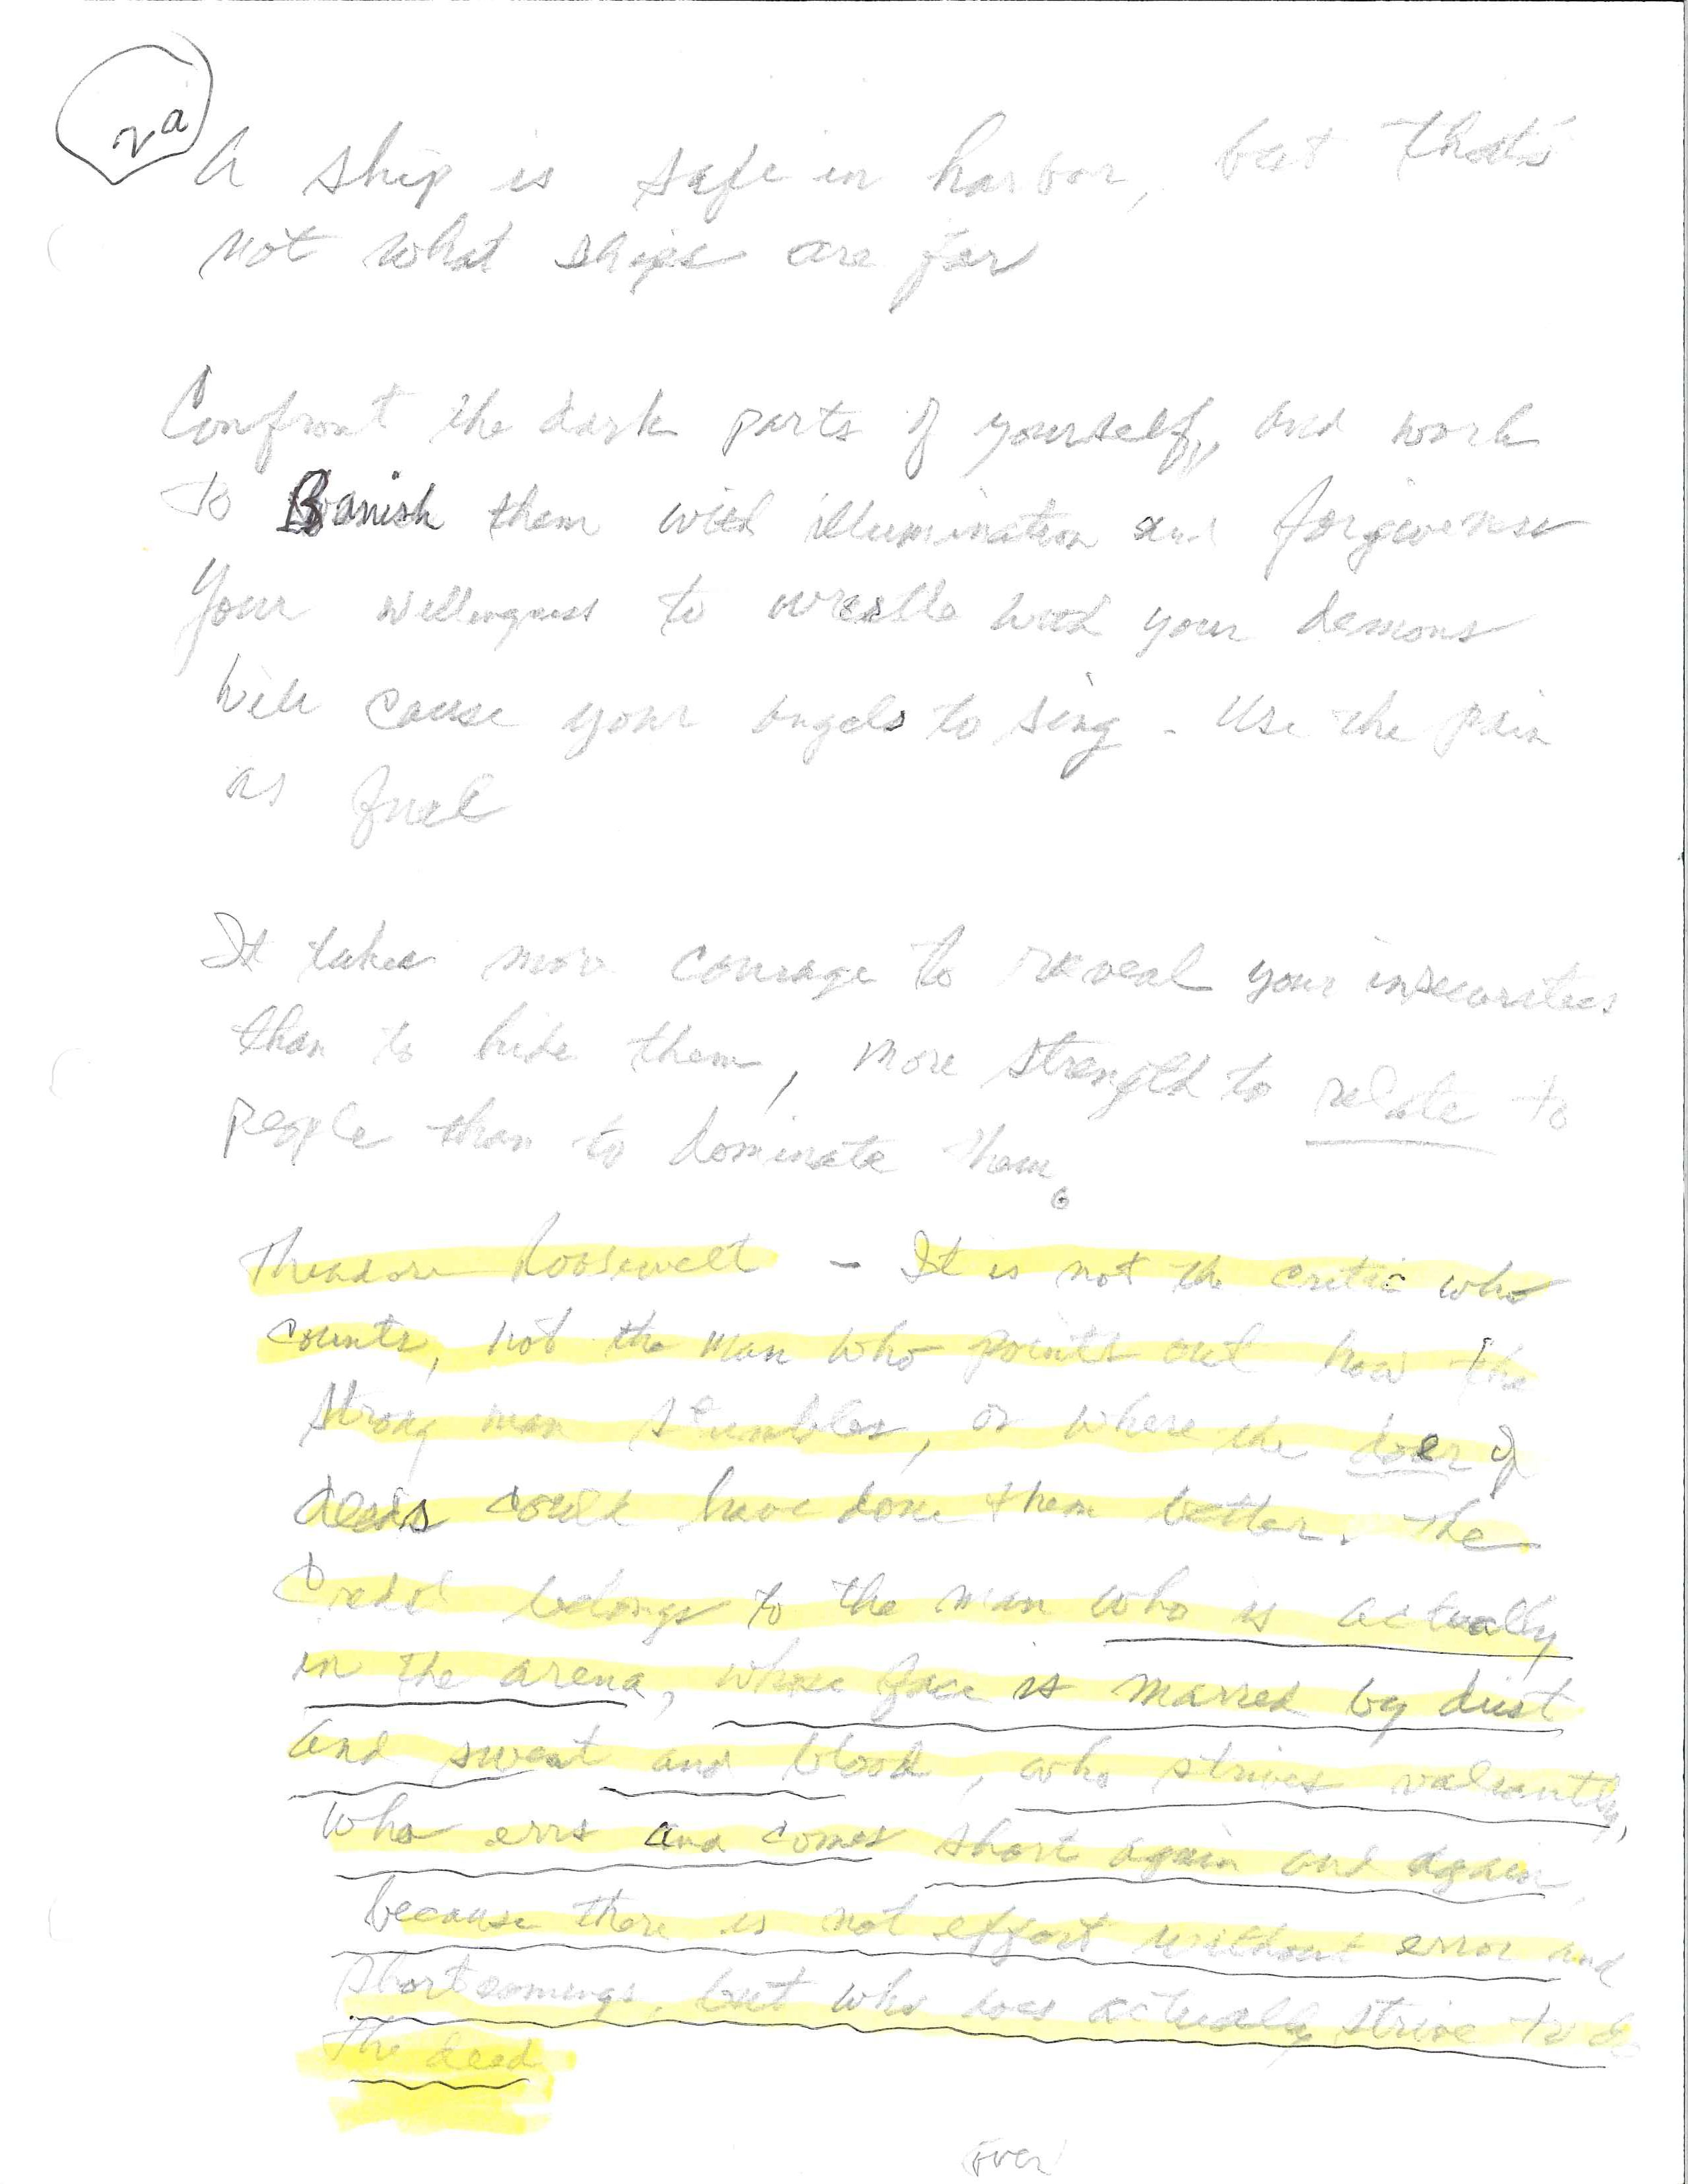 2a
A ship is safe in harbor, but that's
not what ships are for
Confront the dark parts of yourself, and work
to Banish them with illumination and forgiveness
Your willingness to wrestle with your demons
will cause your angels to sing - Use the pain
as fuel
It takes more courage to reveal your insecurities
than to hide them, more strength to relate to
people than to dominate them.
Theodore Roosevelt - It is not the critic who
counts, not the man who points out how the
strong man stumbles, or where the doer of
deeds could have done them better. The
Credit belongs to the man who is actually
in the arena, whose face is marred by dust
and sweat and blood, who strives valiantly,
who errs and comes short again and again,
because there is not effort without error and
shortcomings, but who does actually strive to do
the deed
over